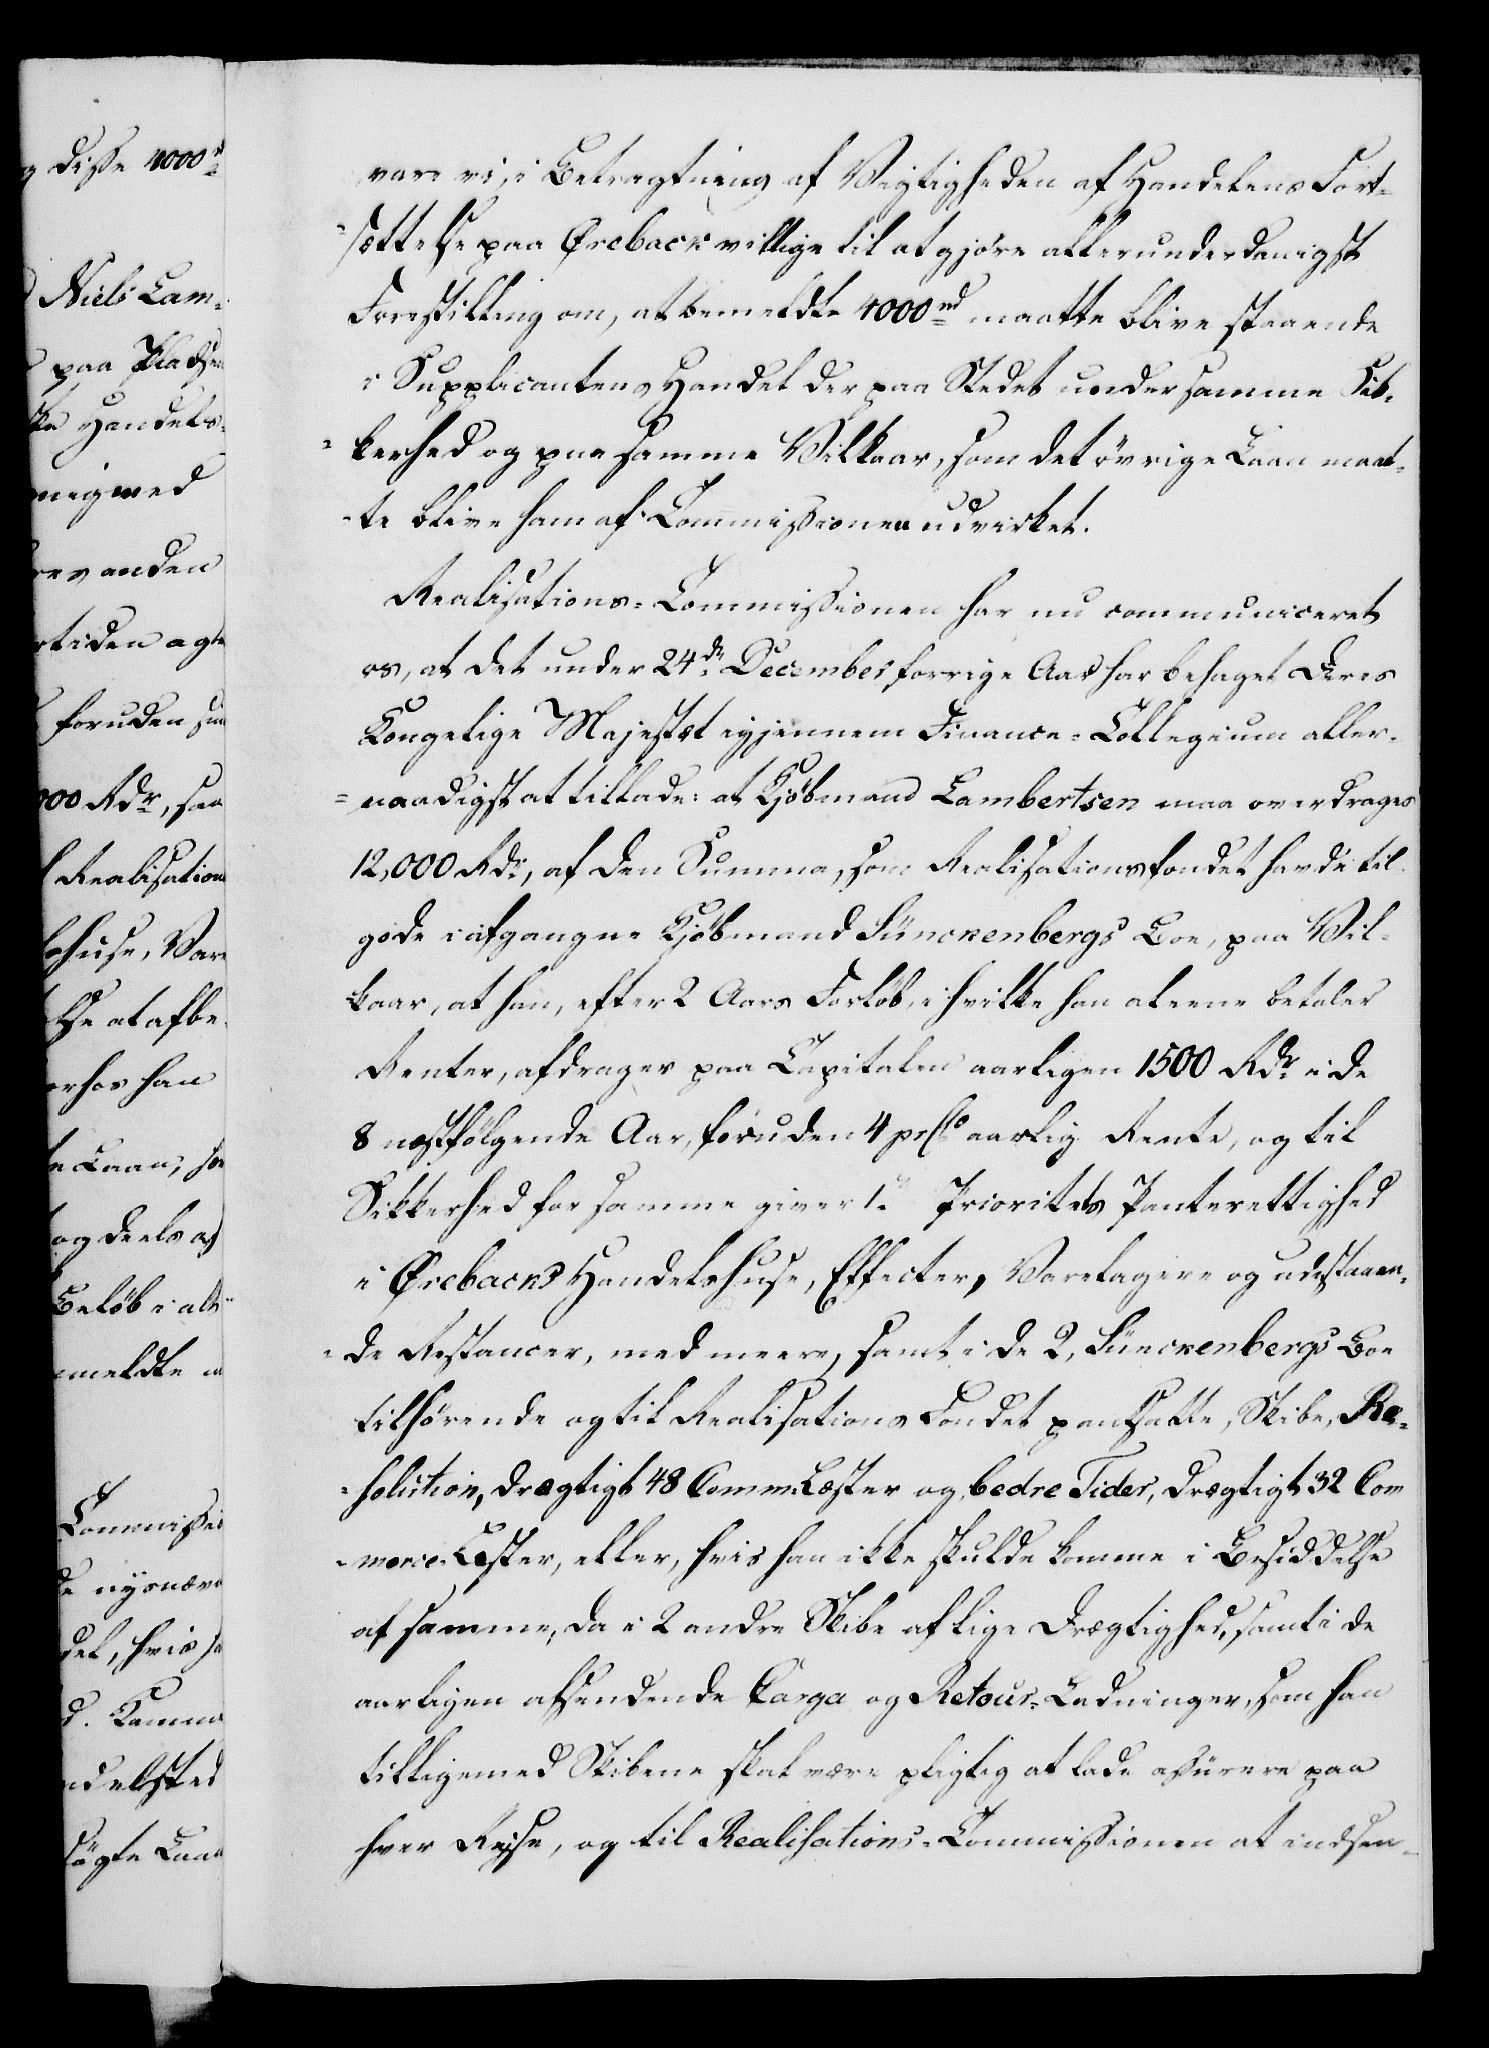 disse 4000rd
Niels Lam-
paa Pladsen
Handels-
mig med
anden
rtiden agte
foruden sin
000 Rdr, saa
Realisation
huse, Vare
at afbe-
rhos han
Laan, so
og deels af
Beløb i alt
meldte
Commissio
de nysnævn
del, hvis
d. Kamme
ndelsted
søgte Laan
vare vi, i Betragtning af Vigtigheden af Handelens Fort-
-sættelse paa Öreback villige til at gjöre allerunderdanigst
Forestilling om, at bemeldte 4000rd maatte blive staaende
i Supplicantens Handel der paa Stedet under samme Sik-
-kerhed og paa samme Vilkaar, som det övrige Laan maat-
-te blive ham af Commissionen udvirket.
Realisations-Commissionen har nu communiceret
os, at det under 24de December forrige Aar har behaget Deres
Kongelige Majestæt igjennem Finance-Collegium aller-
-naadigst at tillade: at Kjöbmand Lambertsen maa overdrages
12,000 Rdr, af den Summa, som Realisationsfondet havde til
gode i afgangne Kjöbmand Sünckenbergs Boe, paa Vil-
kaar, at han, efter 2 Aars Forlöb, i hvilke han alene betaler
Renter, afdrager paa Capitalen aarligen 1500 Rdr i de
8 næstfölgende Aar, foruden 4 prCto aarlig Rente, og til
Sikkerhed for samme giver 1te Prioritets Panterettighed
i Örebacks Handelshuse, Effecter, Varelagere og udestaaen-
-de Restancer, med meere, samt i de 2, Sünckenbergs Boe
tilhörende og til Realisations Fondet pantsatte, Skibe, Re-
-solution, drægtigt 48 Comm. Læster og bedre Tider, drægtigt 32 Com
-merce-Læster, eller, hvis han ikke skulde komme i Besiddelse
af samme, da i 2 andre Skibe af lige Drægtighed, samt i de
aarligen afsendende Carga og Retour-Ladninger, som han
tilligemed Skibene skal være pligtig at lade assurere paa
hver Rejse, og til Realisations-Commissionen at indsen-